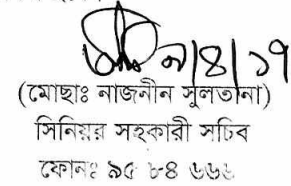 ৯/৪/১৭
(মোছাঃ নাজনীন সুলতানা)
সিনিয়র সহকারী সচিব
ফোনঃ ৯৫ ৮৪ ৬৬৬